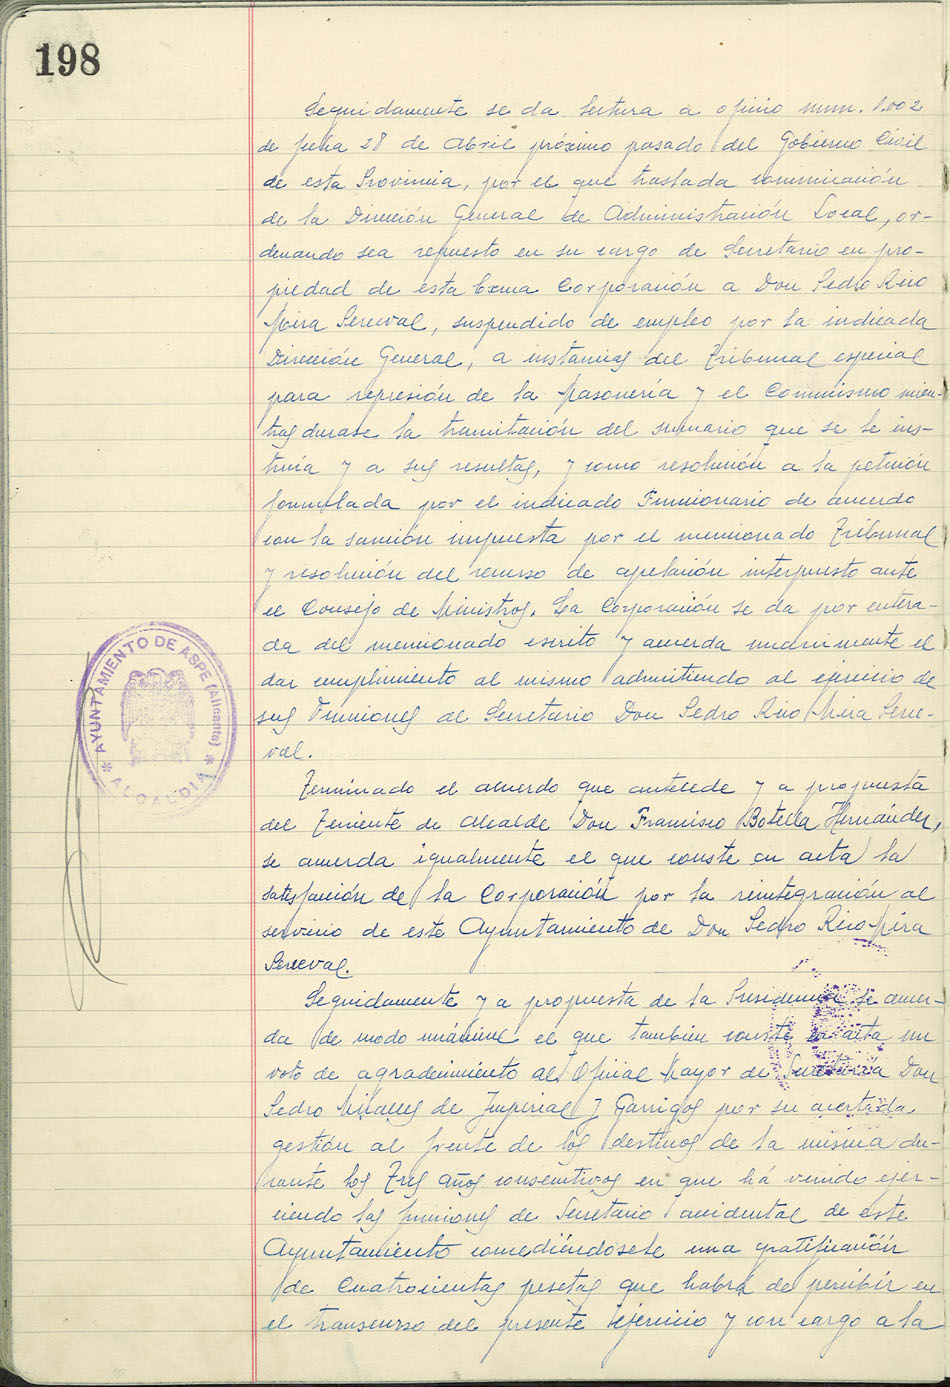 198
Seguidamente se da lectura a oficio num. 1.002
de fecha 28 de Abril próximo pasado del Gobierno Civil
de esta Provincia, por el que traslada comunicación
de la Dirección General de Administración Local, or-
denando sea repuesto en su cargo de Secretario en pro-
piedad de esta Excma Corporación a Don Pedro Rico
Mira Cerceval, suspendido de empleo por la indicada
Dirección General, a instancias del Tribunal especial
para represión de la Masonería y el Comunismo mien-
tras durase la tramitación del sumario que se le ins-
truía y a sus resultas, y como resolución a la petición
formulada por el indicado Funcionario de acuerdo
con la sanción impuesta por el mencionado Tribunal
y resolución del recurso de apelación interpuesto ante
el Consejo de Ministros. La Corporación se da por entera-
da del mencionado escrito y acuerda unánimente el
dar cumplimiento al mismo admitiendo al ejercicio de
sus Funciones al Secretario Don Pedro Rico Mira Cerce-
val.
Terminado el acuerdo que antecede y a propuesta
del Teniente de Alcalde Don Francisco Botella Hernández,
se acuerda igualmente el que conste en acta la
satisfacción de la Corporación por la reintegración al
servicio de este Ayuntamiento de Don Pedro Rico Mira
Cerceval.
Seguidamente y a propuesta de la Presidencia se acuer-
da de modo unánime el que tambien conste en acta un
voto de agradecimiento al Oficial Mayor de Secretaría Don
Pedro de Imperial y Garrigos por su acertada
gestión al frente de los destinos de la misma du-
rante los Tres años consecutivos en que há venido ejer-
ciendo las funciones de Secretario accidental de este
Ayuntamiento concediéndosele una gratificación
de Cuatrocientas pesetas que habrá de percibir en
el transcurso del presente ejercicio y con cargo a la
AYUNTAMIENTO DE ASPE (Alicante)
* ALCALDIA *